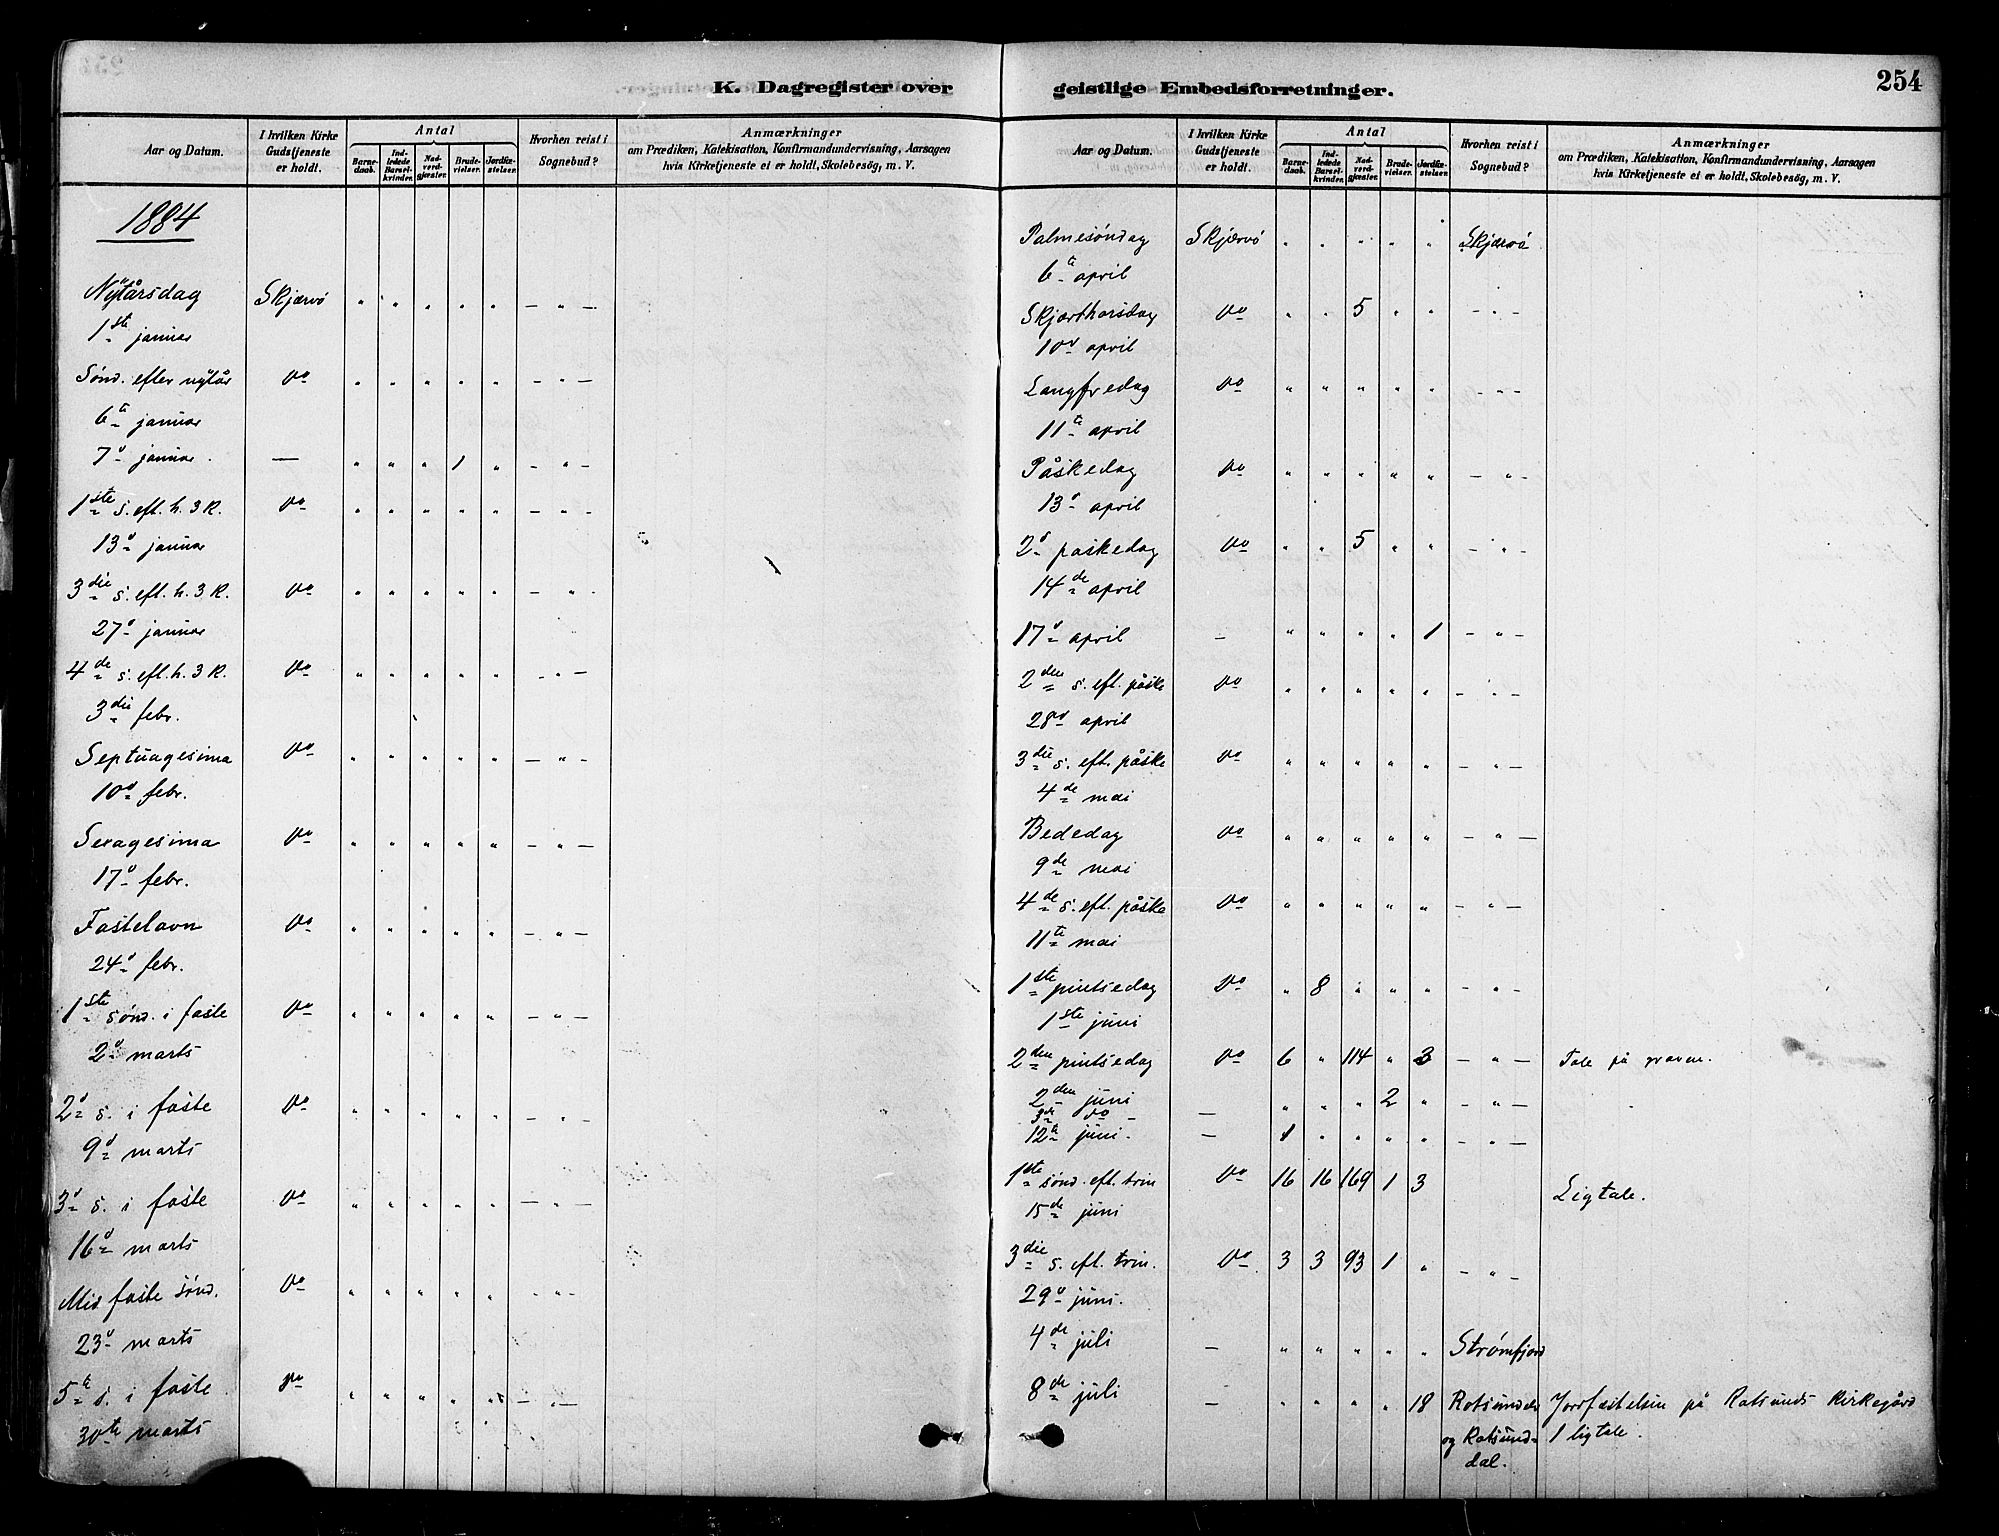 K. Dagregister over
Aar og Datum.
I hvilken Kirke Gudstjeneste er holdt.
Antal
Barnedaab.
Indledede Barselkvinder.
Nadverdgjæster.
Brudevielser.
Jordfæstelser.
Hvorhen reist i Sognebud?
Anmærkninger
om Prædiken, Katekisation, Konfirmandundervisning, Aarsagen
hvis Kirketjeneste ei er holdt, Skolebesøg, m. V.
1884
Nytårsdag Skjærvö " " " " " – " –
1ste januar
Sönd. efter nytår do " " " " " – " –
6te januar
7d januar. — " " " 1 " – " –
1ste s. eft. h. 3 K. do " " " " " – " –
13d januar
3die s. eft. h. 3 K. do " " " " " – " –
27d januar
4de s. eft. h. 3 K. do " " " " " – " –
3die febr.
Septuagesima do " " " " " – " –
10d febr.
Sexagesima do " " " " " – " –
17d febr.
Fastelavn do " " " " " – " –
24d febr.
1ste sönd. i faste do " " " " " – " –
2d marts
2d s. i faste do " " " " " – " –
9d marts
3d s. i faste do " " " " " – " –
16d marts
Midfaste sönd. do " " " " " – " –
23d marts
5te s. i faste do " " " " " – " –
30te marts
geistlige Embedsforretninger.
254
Aar og Datum.
I hvilken Kirke Gudstjeneste er holdt.
Antal
Barnedaab.
Indledede Barselkvinder.
Nadverdgjæster.
Brudevielser.
Jordfæstelser.
Hvorhen reist i Sognebud?
Anmærkninger
om Prædiken, Katekisation, Konfirmandundervisning, Aarsagen
hvis Kirketjeneste ei er holdt, Skolebesög, m. V.
Palmesöndag Skjærvö " " " " " Skjærvö
6te april
Skjærthorsdag do " " 5 " " – " –
10d april
Langfredag do " " " " " – " –
11te april
Påskedag do " " " " " – " –
13d april
2d påskedag do " " 5 " " – " –
14de april
17d april – " " " " 1 – " –
2den s. eft. påske do " " " " " – " –
28d april
3die s. eft. påske do " " " " " – " –
4de mai
Bededag do " " " " " – " –
9de mai
4de s. eft. påske do " " " " " – " –
11te mai
1ste pintsedag do " 8 " " " – " –
1ste juni
2den pintsedag do 6 " 114 " 3 – " – Tale på graven.
2den juni
3de do – — " " " 2 " – " –
12te juni. — 1 " " " " – " –
1ste sönd. eft. trin do 16 16 169 1 3 Ligtale.
15de juni
3die s. eft. trin. do 3 3 93 1 " – " –
29d juni.
4de juli – " " " " " Strömfjord
8de juli – " " " " 18 Rotsundelv Jordfæstelsen på Rotsunds kirkegård
og Rotsund- 1 ligtale.
dal.